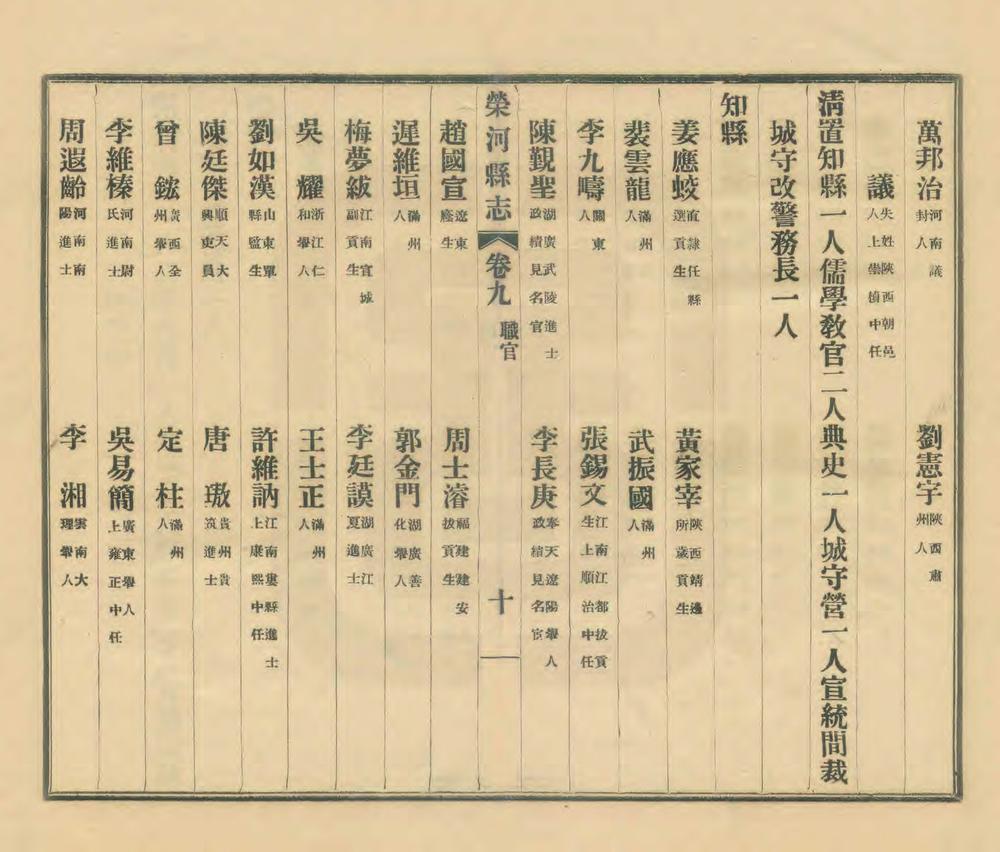 萬邦治河南議封人 劉憲宇陝西肅州人
議失姓陝西朝邑人上崇禎中任
清置知縣一人儒學教官二人典史一人城守營一人宣統間裁
城守改警務長一人
知縣
姜應蛟直隸任縣選貢生 黃家宰陝西靖邊所歲貢生
裴雲龍滿州人 武振國滿州人
李九疇關東人 張錫文江南江都拔貢生上順治中任
陳覲聖湖廣武陵進士政績見名官 李長庚奉天遼陽舉人政績見名宦
榮河縣志 卷九 職官 十
趙國宣遼東廕生 周士濬福建建安拔貢生
遲維垣滿州人 郭金門湖廣善化舉人
梅夢紱江南宣城副貢生 李廷謨湖廣江夏進士
吳耀浙江仁和舉人 王士正滿州人
劉如漢山東單縣監生 許維訥江南婁縣進士上康熙中任
陳廷傑順天大興吏員 唐璈貴州貴筑進士
曾鉉廣西全州舉人 定柱滿州人
李維榛河南尉氏進士 吳易簡廣東舉人上雍正中任
周遐齡河南南陽進士 李湘雲南大理舉人